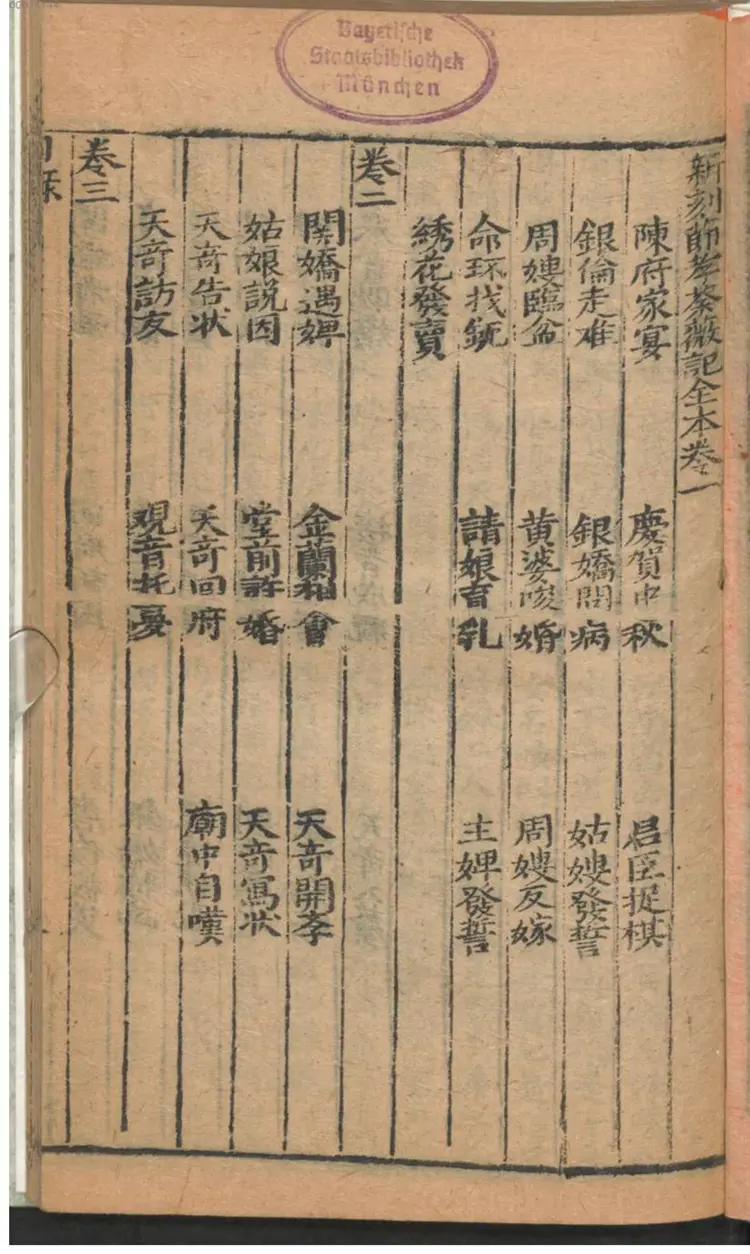 Bayerische
Staatsbibliothek
München
新刻節孝紫薇記全本卷一
陳府家宴 慶賀中秋 君臣捉棋
銀倫走难 銀嬌問病 姑嫂發誓
周嫂臨盆 黄婆唆婚 周嫂反嫁
命环找銃 請娘育乳 主婢發誓
綉花發賣
卷二
関嬌遇婢 金蘭相會 天竒開孝
姑娘説因 堂前許婚 天竒寫状
天竒告状 天竒回府 廟中自嘆
天竒訪友 观音托夢
卷三